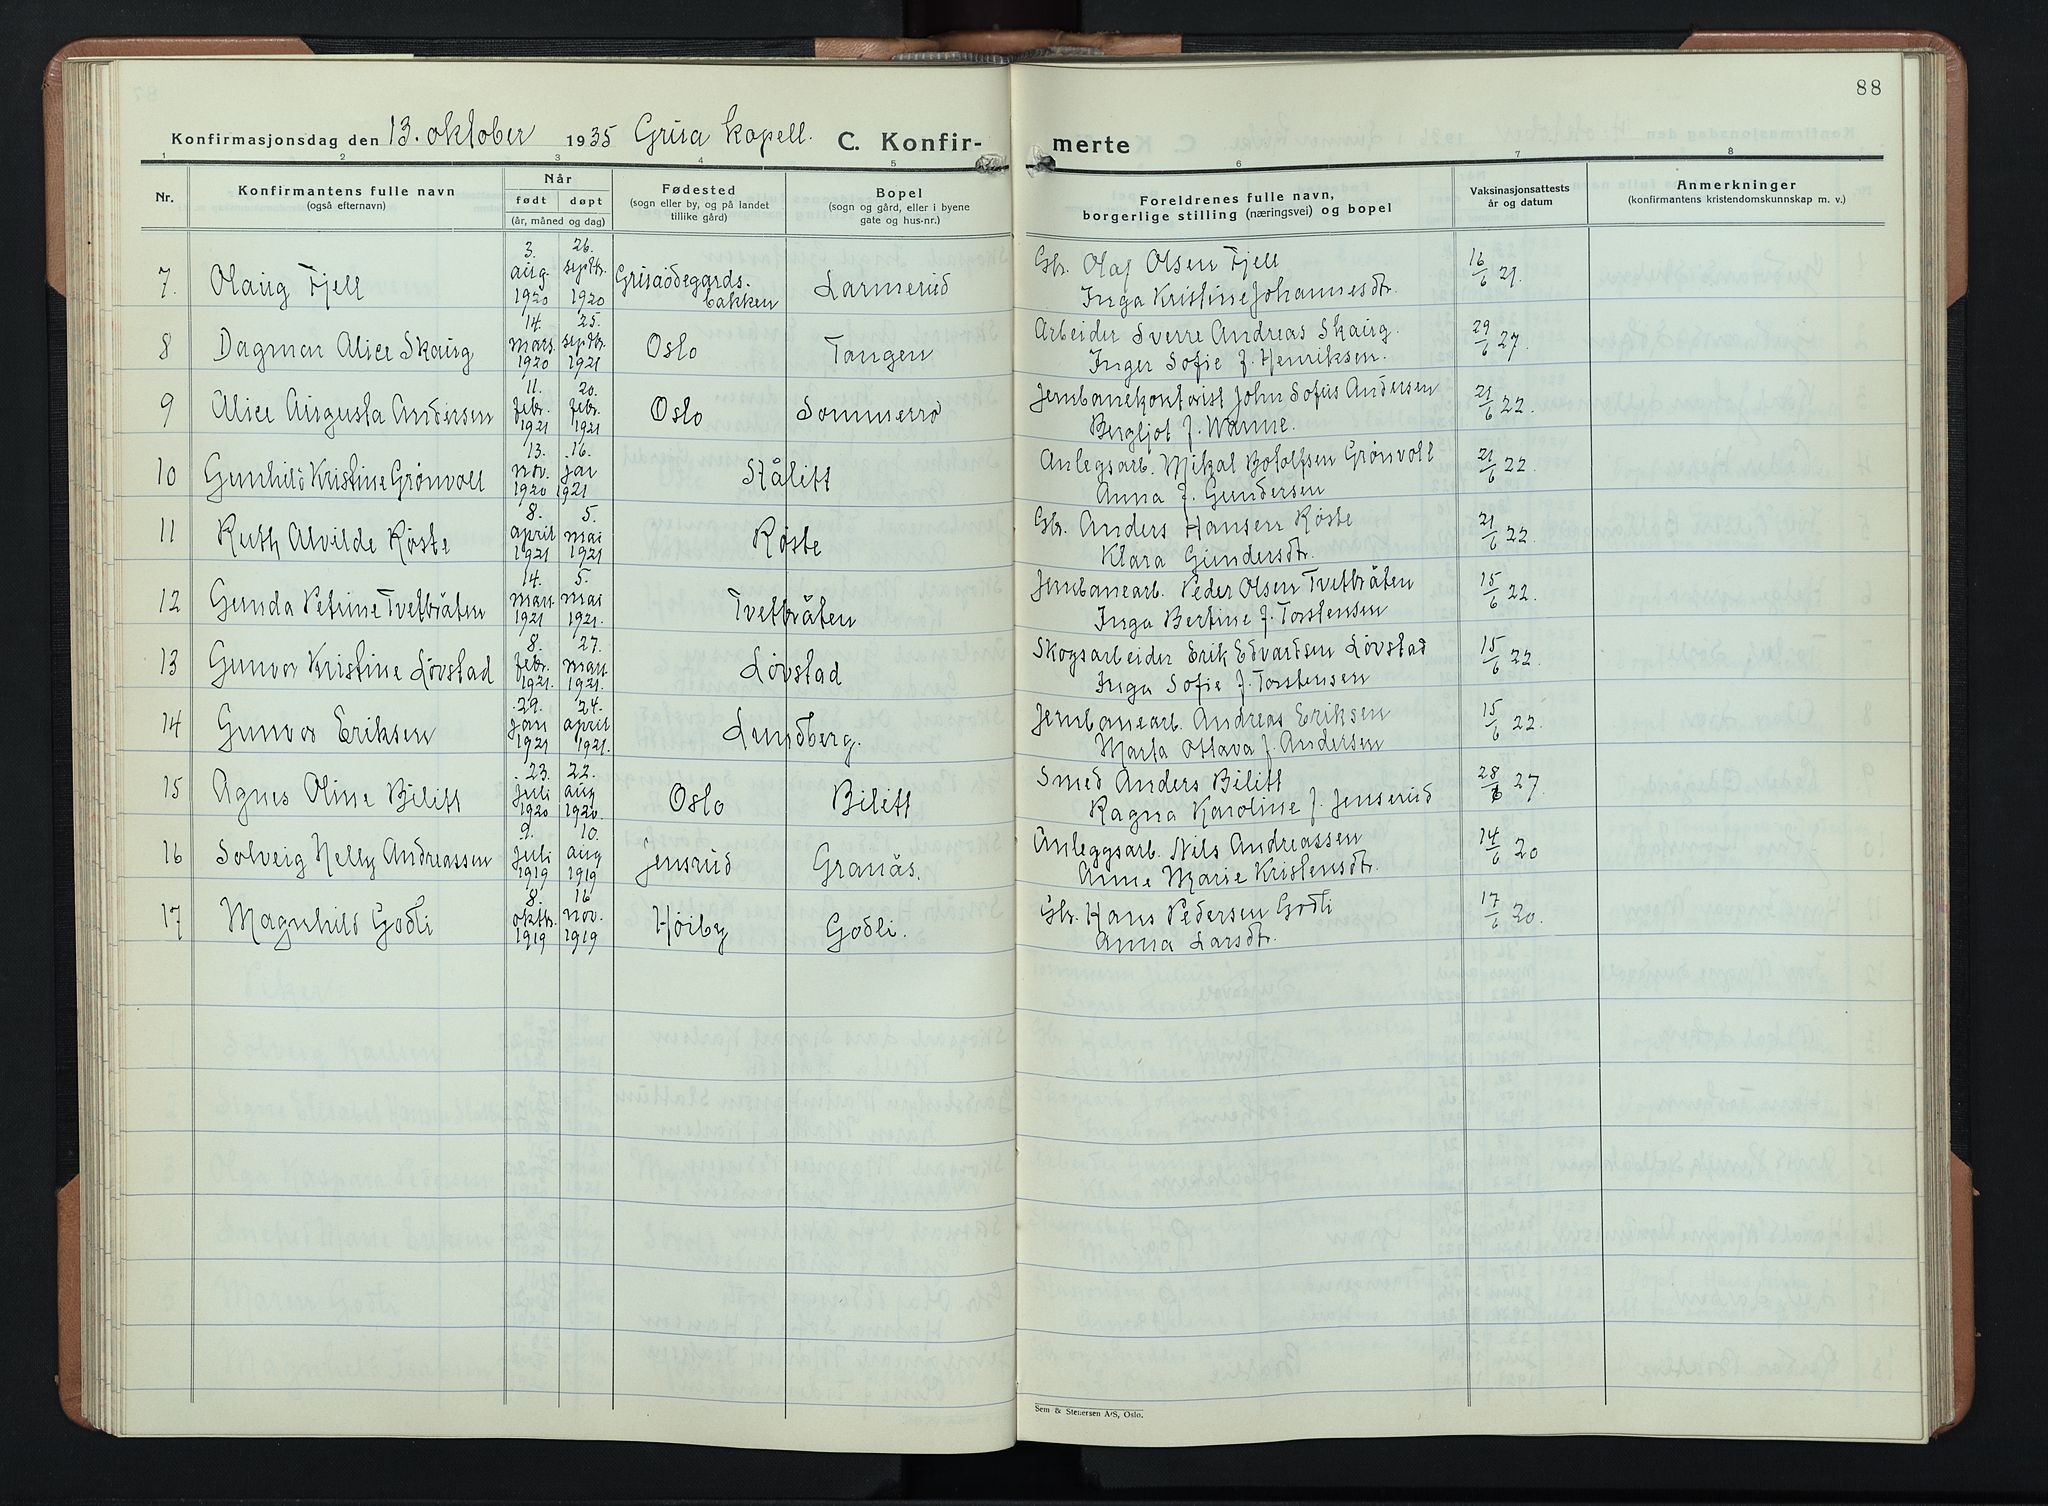 88
Konfirmasjonsdag den 13. oktober 1935 Grua kapell. C. Konfir-merte
1 2 3 4 5 6 7 8
Nr.
Konfirmantens fulle navn
(også efternavn)
Når
født døpt
(år, måned og dag)
Fødested
(sogn eller by, og på landet
tillike gård)
Bopel
(sogn og gård, eller i byene
gate og hus-nr.)
Foreldrenes fulle navn,
borgerlige stilling (næringsvei) og bopel
Vaksinasjonsattests
år og datum
Anmerkninger
(konfirmantens kristendomskunnskap m. v.)
3. 26.
7. Olaug Fjell aug. septbr. Gruaødegards- Larmerud Gbr. Olaf Olsen Fjell 16/6 21.
1920 1920 bakken Inga Kristine Johannesdtr.
14. 25.
8 Dagmar Alice Skaug mars septbr. Oslo Tangen Arbeider Sverre Andreas Skaug. 29/6 27.
1920 1921 Inger Sofie f. Henriksen.
11. 20.
9 Alice Augusta Andersen febr. febr. Oslo Sommerro Jernbanekontorist John Sofus Andersen 21/6 22.
1921 1921 Bergljot f. Wanne.
13. 16.
10 Gunhild Kristine Grønvoll nov. jan Stålitt Anlegsarb. Mikal Botolfsen Grønvoll 21/6 22.
1920 1921 Anna f. Gundersen
8. 5.
11 Ruth Alvilde Røste april mai Røste Gbr. Anders Hansen Røste 21/6 22.
1921 1921 Klara Gundersdtr.
14. 5.
12 Gunda Petrine Tvetbråten mars mai Tvetbråten Jernbanearb. Peder Olsen Tvetbråten 15/6 22.
1921 1921. Inga Bertine f. Torstensen
8. 27.
13 Gunvor Kristine Løvstad febr. mars Løvstad Skogsarbeider Erik Edvardsen Løvstad 15/6 22.
1921. 1921. Inga Sofie f. Torstensen
29. 24.
14 Gunvor Eriksen jan april Lundberg. Jernbanearb. Andreas Eriksen 15/6 22.
1921 1921. Marta Ottava f. Andersen
23. 22.
15 Agnes Oline Bilitt juli aug Oslo Bilitt Smed Anders Bilitt 28/6 27.
1920 1920. Ragna Karoline f. Jenserud
9. 10.
16 Solveig Nelly Andreassen juli aug Jensrud Granås. Anleggsarb. Nils Andreassen 14/6 20
1919 1919 Anne Marie Kristensdtr.
8. 16
17 Magnhild Godli oktbr. nov. Høiby Godli. Gbr. Hans Pedersen Godli 17/6 20.
1919 1919 Anna Larsdtr.
Sem & Stenersen A/S, Oslo.